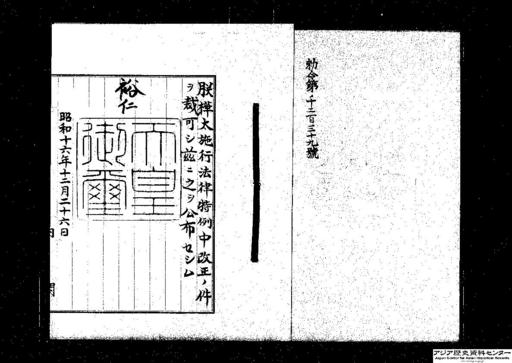 勅令第千二百三十九號
朕樺太施行法律特例中改正ノ件
ヲ裁可シ茲ニ之ヲ公布セシム
裕仁
天皇
御璽
昭和十六年十二月二十六日
アジア歴史資料センター
Japan Center for Asian Historical Records